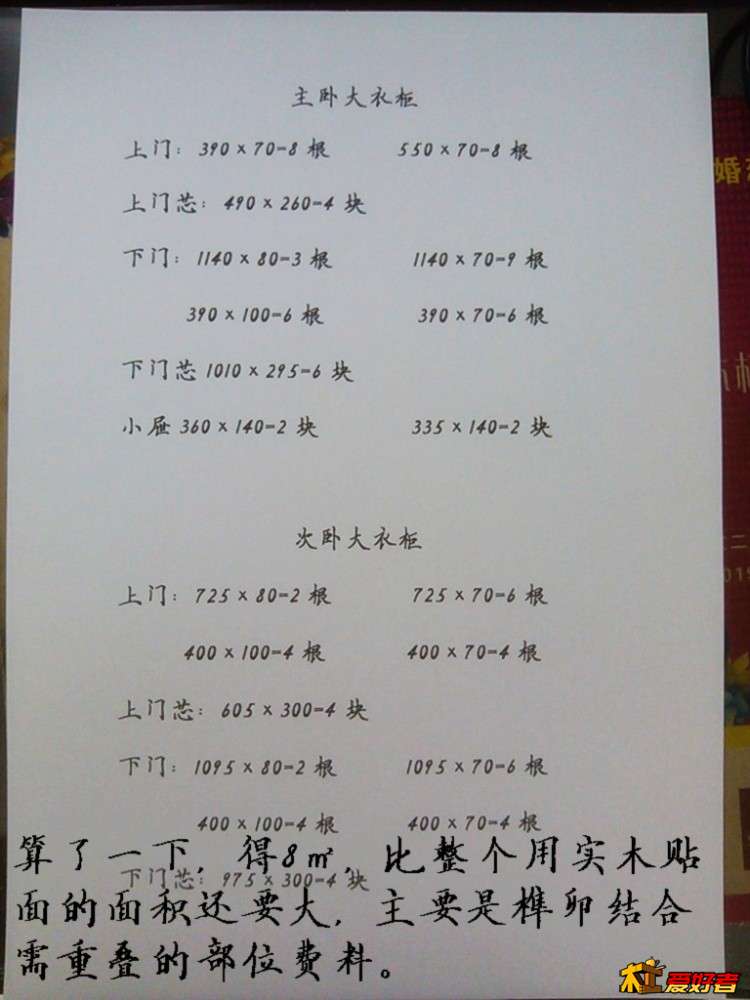 主卧大衣柜
上门：390×70=8 根 550×70=8 根
上门芯：490×260=4 块
下门：1140×80=3 根 1140×70=9 根
390×100=6 根 390×70=6 根
下门芯 1010×295=6 块
小屉 360×140=2 块 335×140=2 块
次卧大衣柜
上门：725×80=2 根 725×70=6 根
400×100=4 根 400×70=4 根
上门芯：605×300=4 块
下门：1095×80=2 根 1095×70=6 根
400×100=4 根 400×70=4 根
下门芯：975×300=4 块
算了一下，得8㎡，比整个用实木贴
面的面积还要大，主要是榫卯结合
需重叠的部位费料。
婚
木工爱好者